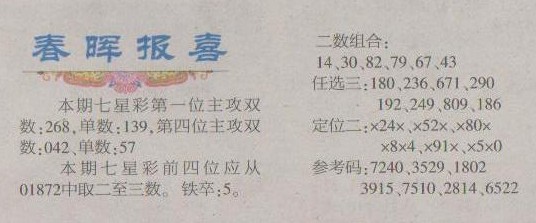 春晖报喜
本期七星彩第一位主攻双
数:268,单数:139,第四位主攻双
数:042、单数:57
本期七星彩前四位应从
01872中取二至三数。铁卒:5。
二数组合:
14、30、82、79、67、43
任选三:180、236、671、290
192、249、809、186
定位二:×24×、×52×、×80×
×8×4、×91×、×5×0
参考码:7240、3529、1802
3915、7510、2814、6522